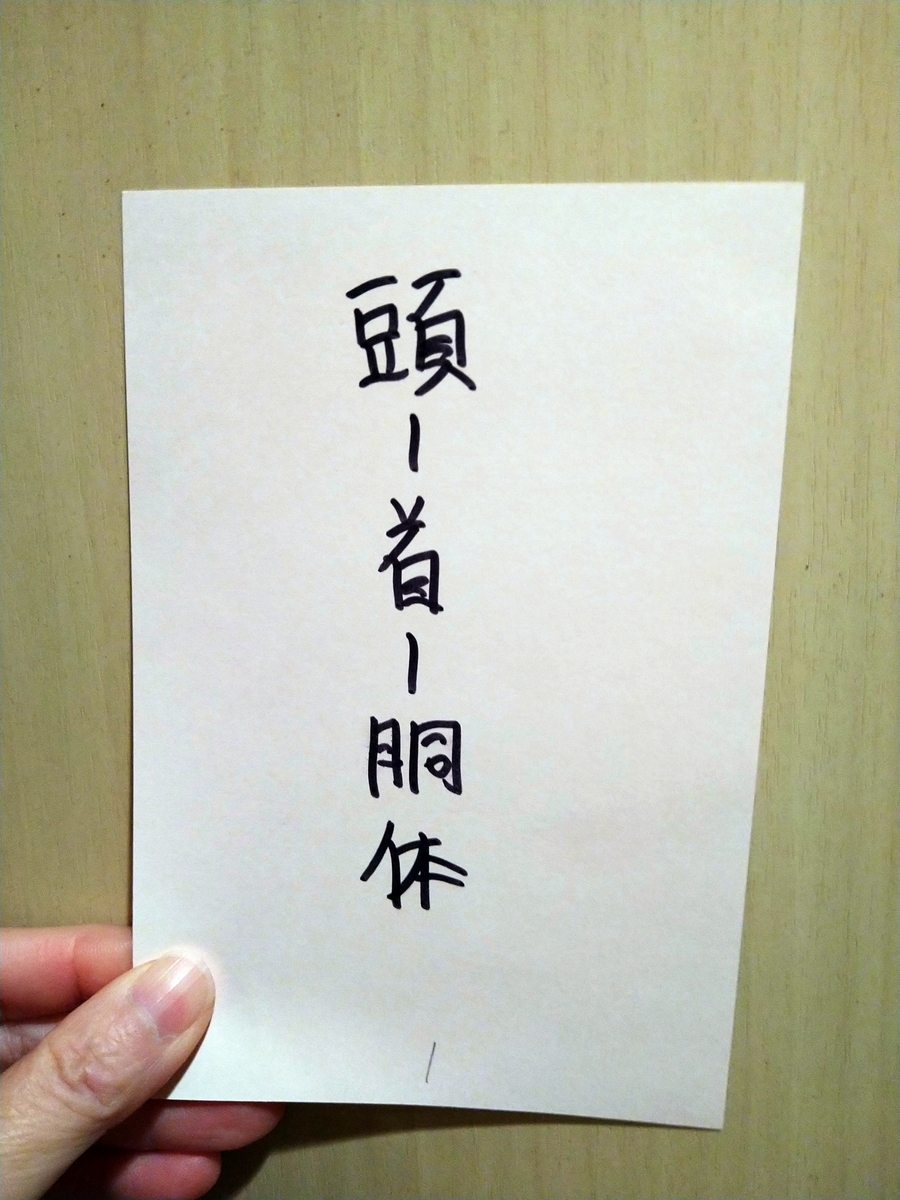 頭ー首ー胴体
1